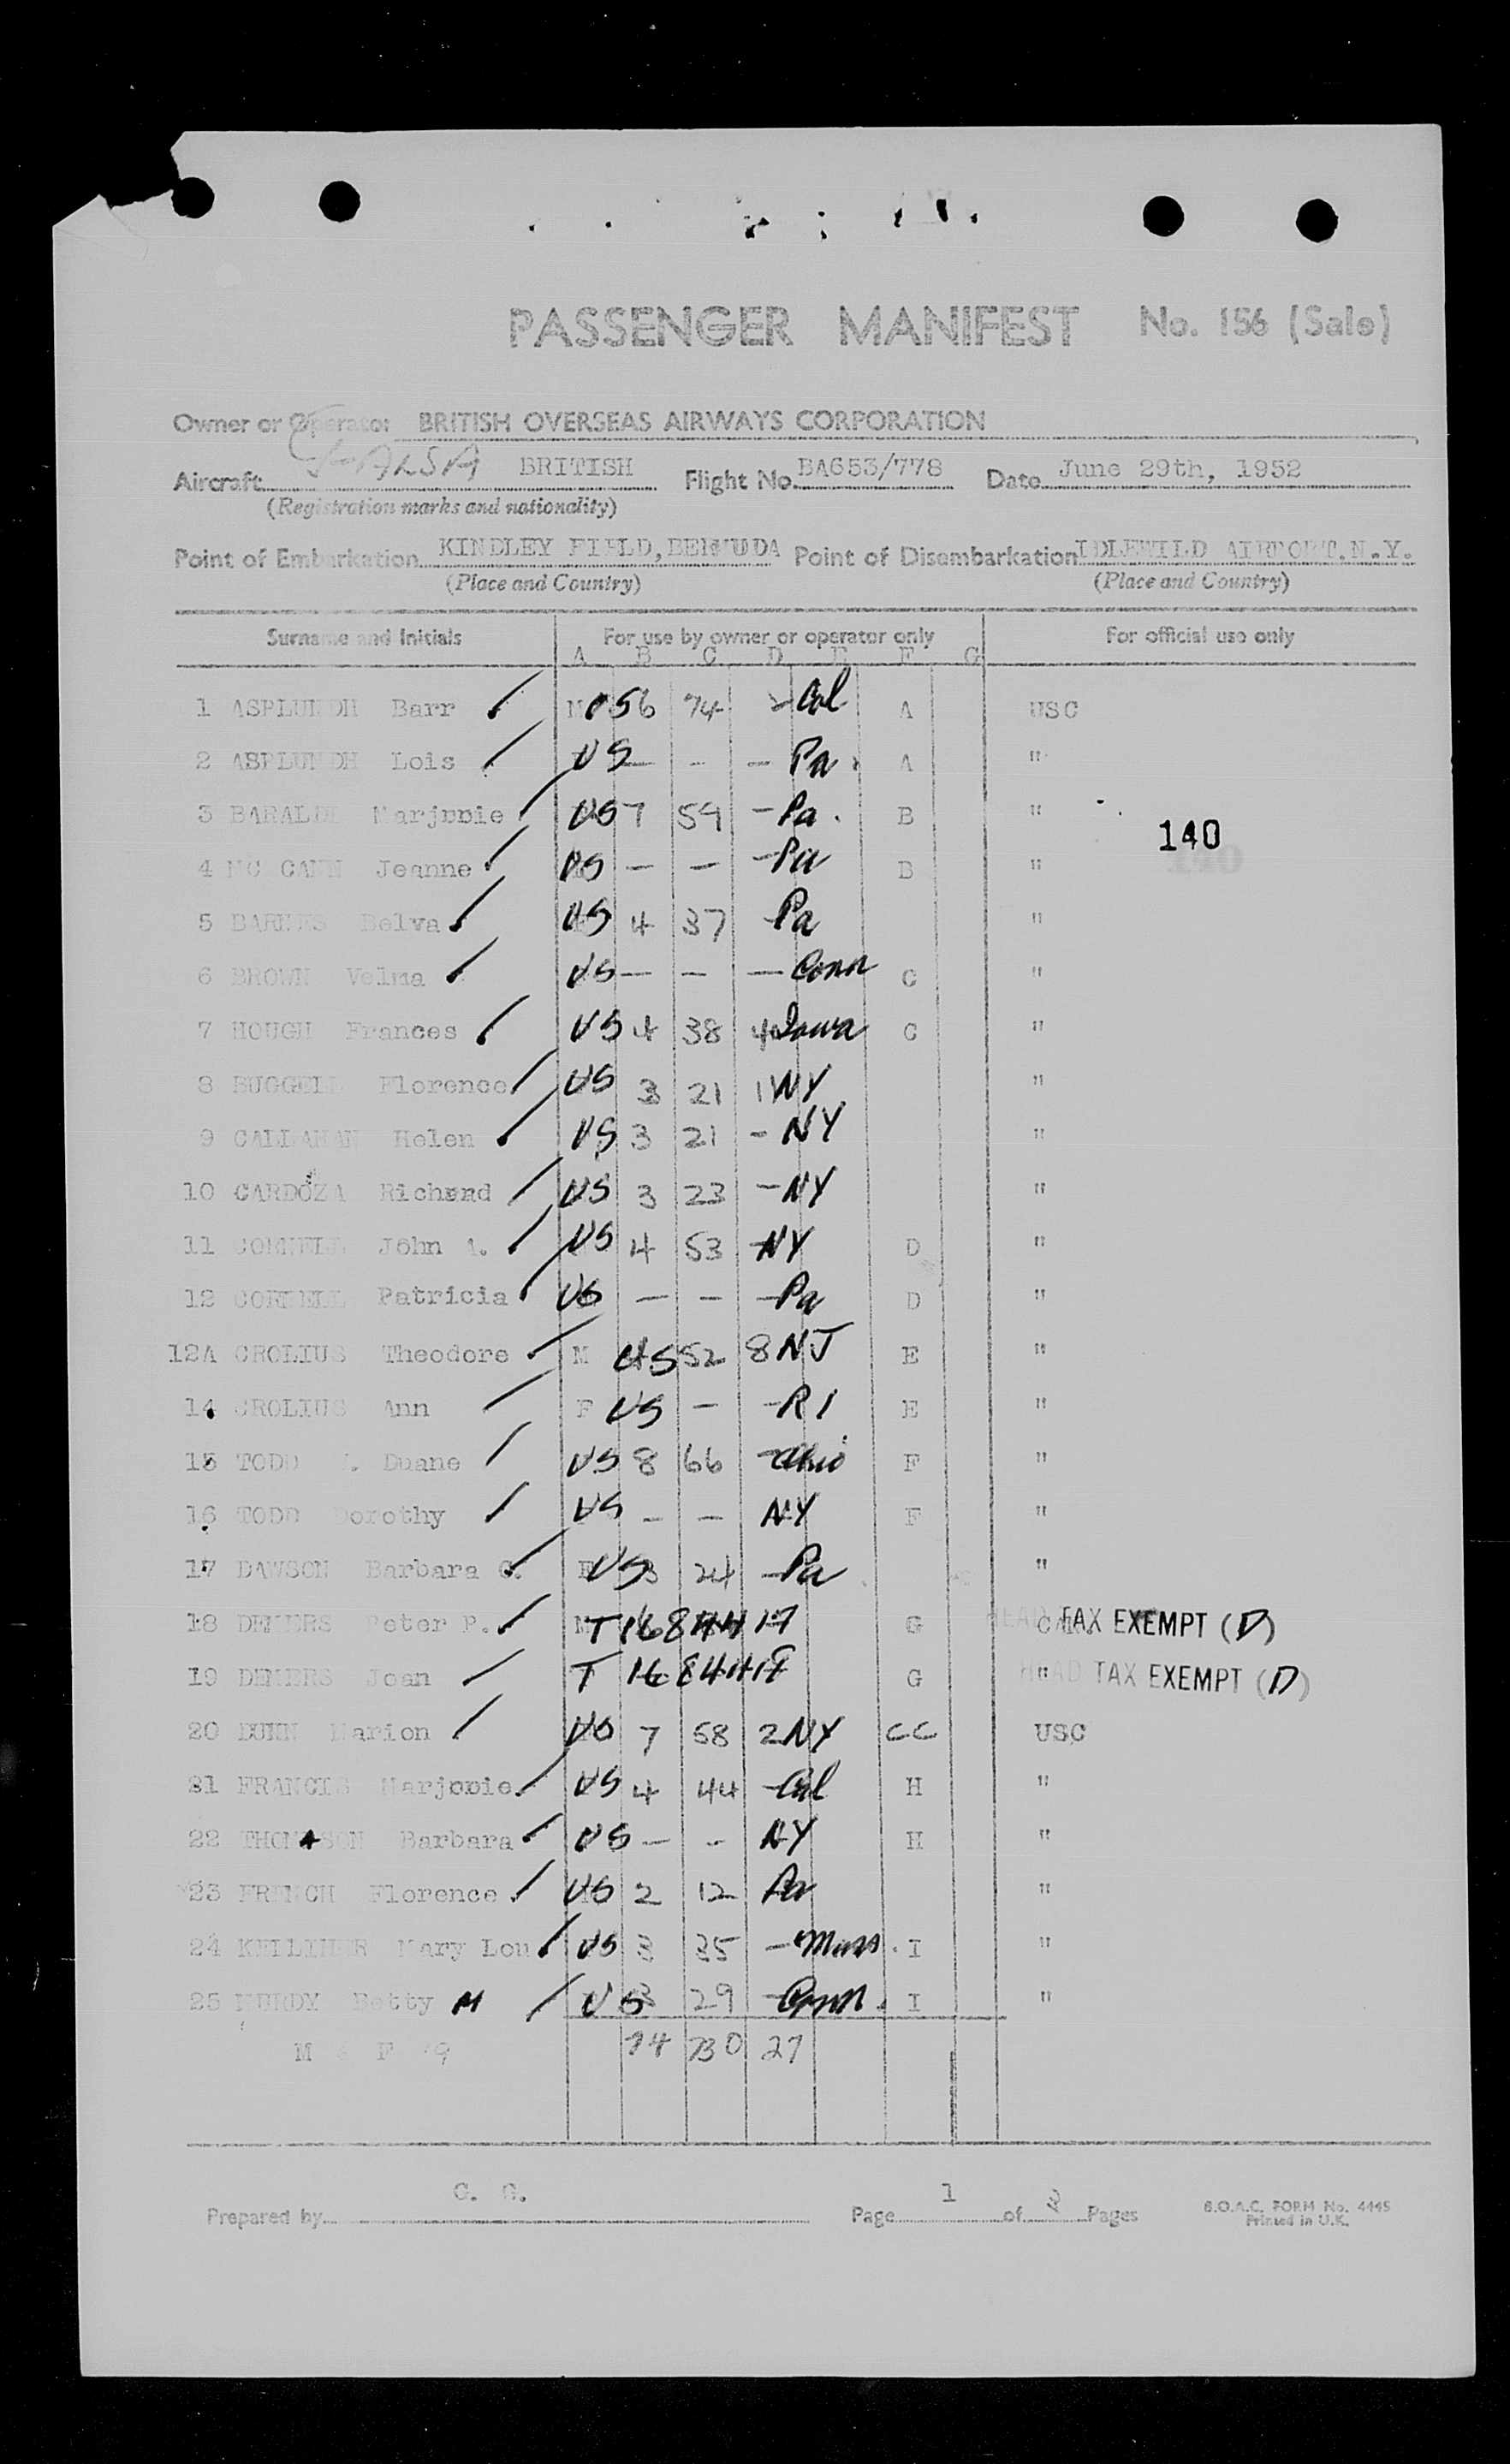 PASSENGER MANIFEST No. 156 (Sale)
Owner or Operator BRITISH OVERSEAS AIRWAYS CORPORATION
Aircraft G-ALSA BRITISH Flight No. BA653/778 Date June 29th, 1952
(Registration marks and nationality)
Point of Embarkation KINDLEY FIELD, BERMUDA Point of Disembarkation IDLEWILD AIRPORT.N.Y.
(Place and Country) (Place and Country)
Surname and Initials For use by owner or operator only For official use only
A B C D E F G
1 ASPLUNDH Barr 56 74 2 Cal A USC
2 ASPLUNDH Lois US — - — Pa. A "
3 BARALDI Marjorie US 7 59 — Pa. B "
140
4 MC CANN Jeanne US — — — Pa B "
5 BARNES Belva US 4 37 Pa "
6 BROWN Velma US — — — Conn C "
7 HOUGH Frances US 4 38 4 Iowa C "
8 BUGGELN Florence US 3 21 1 NY "
9 CALLAHAN Helen US 3 21 - NY "
10 CARDOZA Richard US 3 23 — NY "
11 CORNELL John A. US 4 53 — NY D "
12 CORNELL Patricia US — — — Pa D "
12A CROLIUS Theodore M US 52 8 NJ E "
14 CROLIUS Ann F US — — RI E "
15 TODD Duane US 8 66 — Ohio F "
16 TODD Dorothy US — — NY F "
17 DAWSON Barbara C. F US 3 24 — Pa "
18 DEMERS Peter P. M T 1684417 G HEAD TAX EXEMPT (D)
19 DEMERS Joan T 1684418 G " HEAD TAX EXEMPT (D)
20 DUNN Marion US 7 58 2 NY CC USC
21 FRANCIS Marjorie US 4 44 — Cal H "
22 THOMASON Barbara US — - NY H "
23 FRENCH Florence US 2 12 Pa "
24 KELLIHER Mary Lou US 3 35 — Mass. I "
25 Betty M US 3 29 — Conn. I "
M F 74 730 27
Prepared by C. G. Page 1 of Pages
B.O.A.C. FORM No. 4445
Printed in U.K.